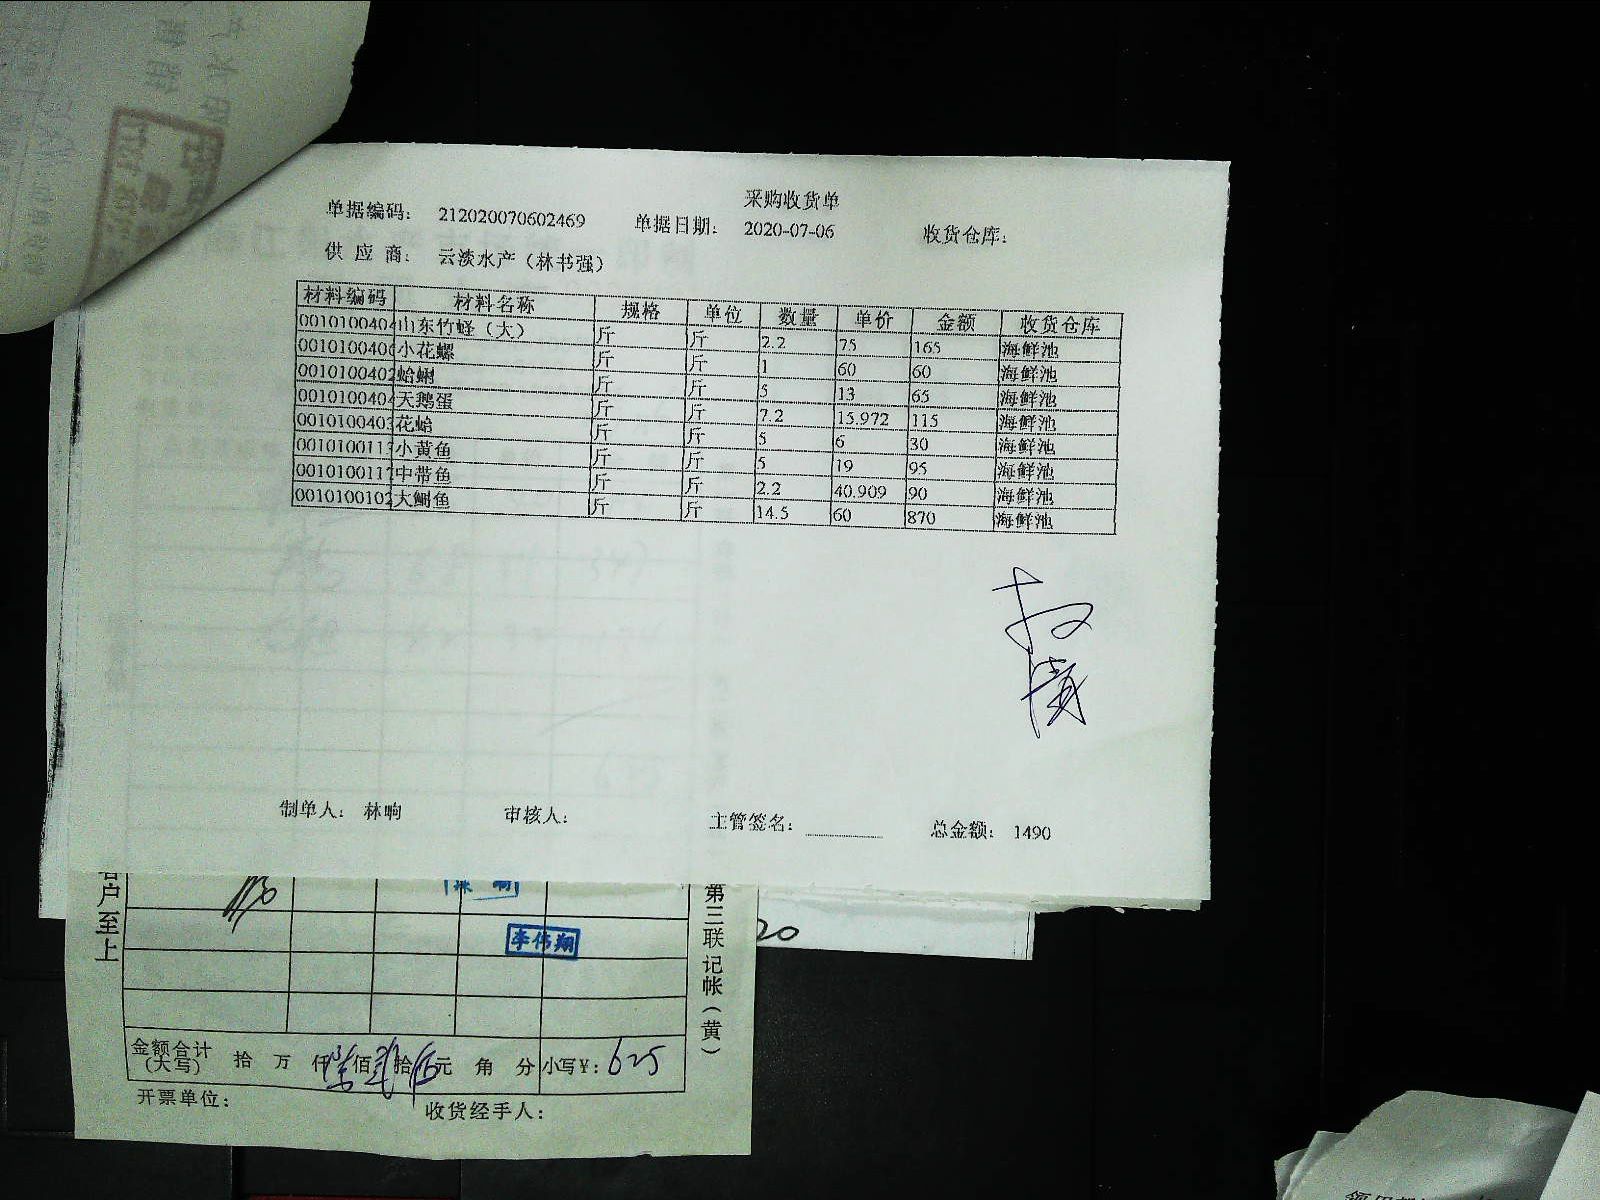 采购收货单
单据编码: 212020070602469 单据日期: 2020-07-06 收货仓库:
供 应 商: 云淡水产（林书强）
材料编码 材料名称 规格 单位 数量 单价 金额 收货仓库
0010100404 山东竹蛏（大） 斤 斤 2.2 75 165 海鲜池
001010040 小花螺 斤 斤 1 60 60 海鲜池
0010100402 蛤蜊 斤 斤 5 13 65 海鲜池
0010100404 天鹅蛋 斤 斤 7.2 15.972 115 海鲜池
0010100403 花蛤 斤 斤 5 6 30 海鲜池
001010011 小黄鱼 斤 斤 5 19 95 海鲜池
001010011 中带鱼 斤 斤 2.2 40.909 90 海鲜池
0010100102 大鮰鱼 斤 斤 14.5 60 870 海鲜池
制单人: 林晌 审核人: 主管签名: 总金额: 1490
客户至上
第三联 记帐（黄）
李伟翔
20
金额合计（大写） 拾 万 仟陆佰贰拾伍元 角 分 小写¥: 625
开票单位: 收货经手人: